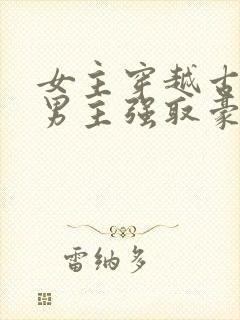 女主穿越古
男主强取豪
雷纳多